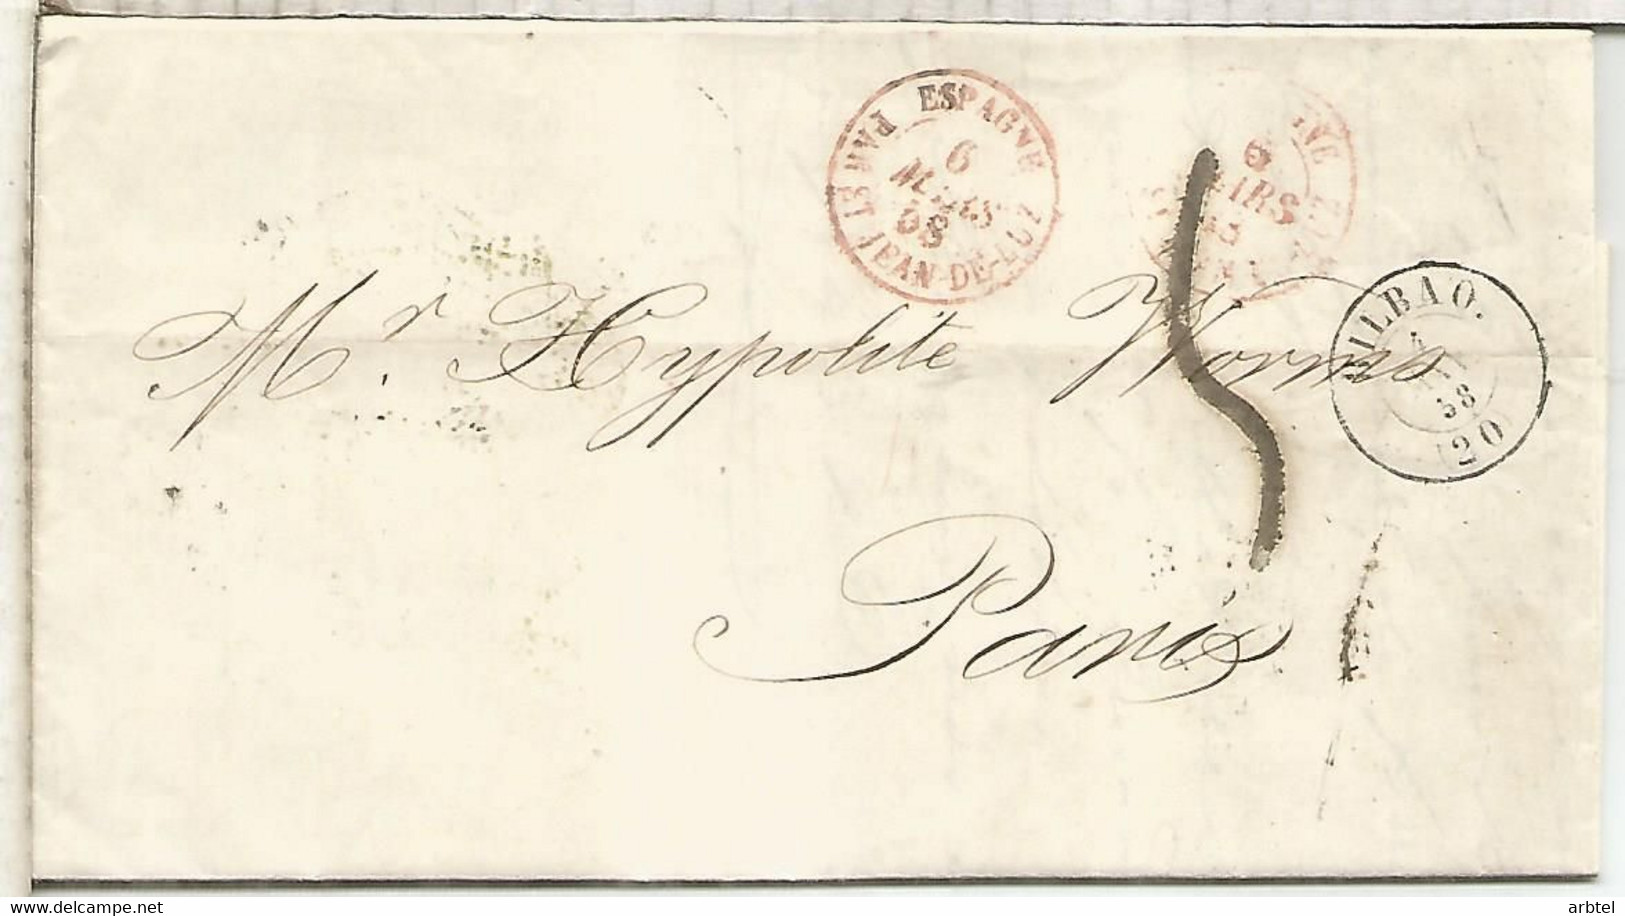 ESPAGNE
PAR ST JEAN-DE-LUZ
6
MARS
58
6
BILBAO.
4
58
(20)
5
Mr. Hypolite Worms
Paris
delcampe.com
arbtel